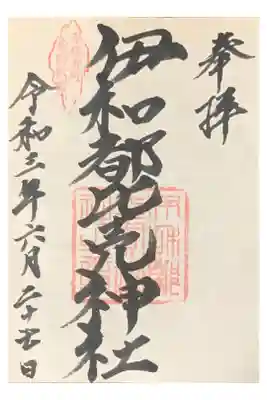 奉拝
伊和都比売神社
令和三年六月二十五日